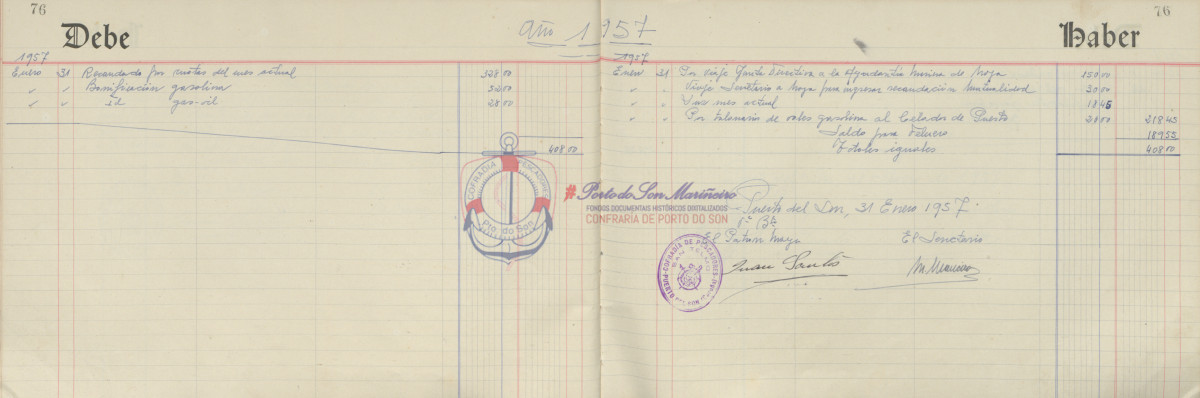 76
Debe
Año 1957
1957
Enero 31 Recaudado por cuotas del mes actual 328 00
" " Bonificación gasolina 52 00
" " id gas-oil 28 00
408 00
76
Haber
1957
Enero 31 Por viaje Junta Directiva a la Ayudantía Marina de Noya 150 00
" " Viaje Secretario a Noya para ingresar recaudación Mutualidad 30 00
" " Luz mes actual 18 45
" " Por talonario de vales gasolina al Celador de Puerto 20 00 218 45
Saldo para Febrero 189 55
Totales iguales 408 00
Puerto del Son, 31 Enero 1957
Vº Bº
El Patron Mayor El Secretario
Juan Santos
COFRADIA DE PESCADORES
Pto. do Son
#Porto do Son Mariñeiro
FONDOS DOCUMENTAIS HISTÓRICOS DIXITALIZADOS
CONFRARÍA DE PORTO DO SON
COFRADIA DE PESCADORES
SAN TELMO